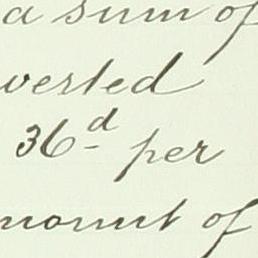 a sum of
vested
36d per
mount of